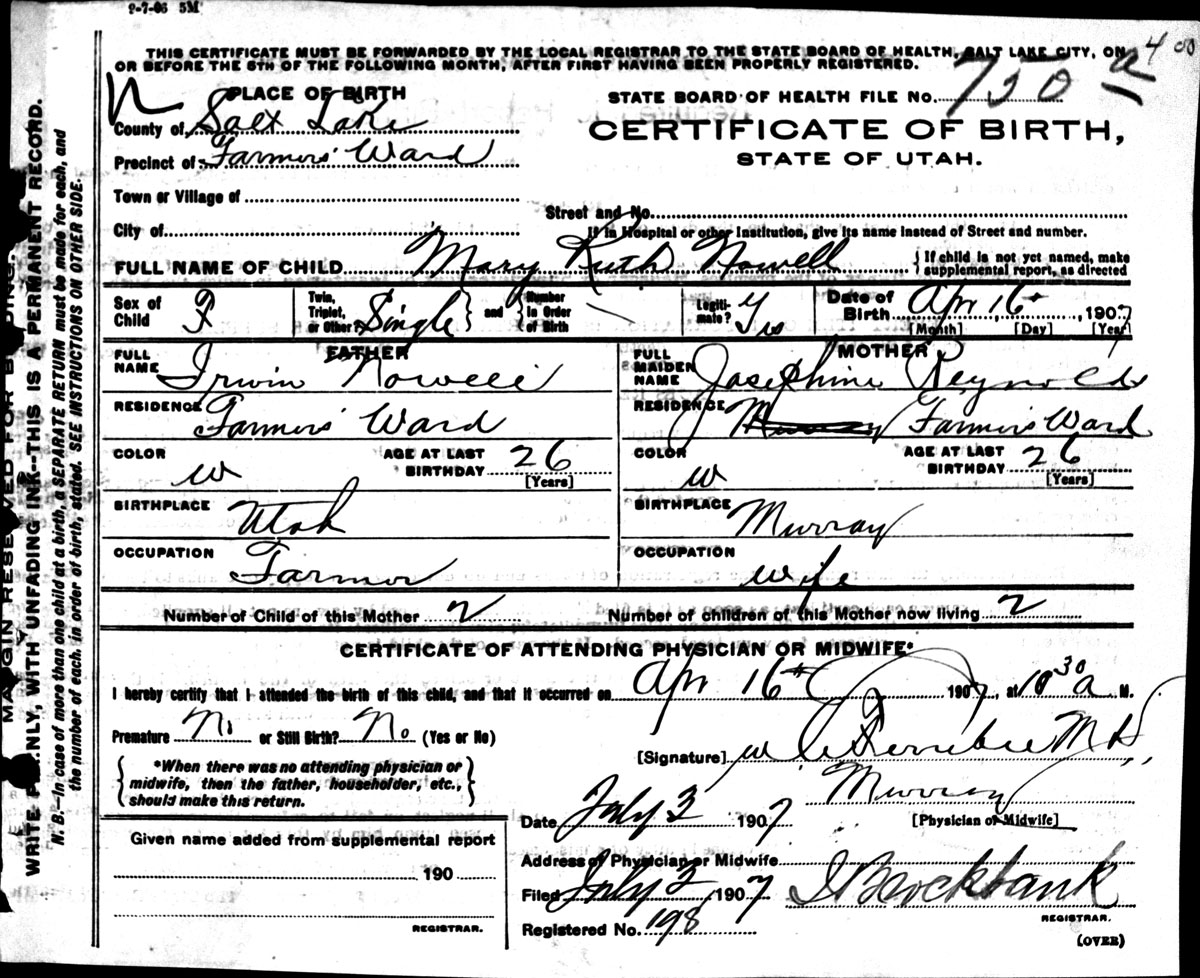 2-7-06 5M
THIS CERTIFICATE MUST BE FORWARDED BY THE LOCAL REGISTRAR TO THE STATE BOARD OF HEALTH, SALT LAKE CITY, ON
OR BEFORE THE 5TH OF THE FOLLOWING MONTH, AFTER FIRST HAVING BEEN PROPERLY REGISTERED.
PLACE OF BIRTH
STATE BOARD OF HEALTH FILE No. 750 a 400
County of Salt Lake
CERTIFICATE OF BIRTH,
Precinct of Farmers' Ward
STATE OF UTAH.
Town or Village of
Street and No.
City of
If in Hospital or other Institution, give its name instead of Street and number.
FULL NAME OF CHILD Mary Ruth Nowell { If child is not yet named, make supplemental report, as directed
Sex of Child F Twin, Triplet, or Other? Single and Number in Order of Birth Legiti-mate? Yes Date of Birth Apr 16th, 1907
[Month] [Day] [Year]
FATHER
FULL NAME Irwin Nowell
RESIDENCE Farmers Ward
COLOR W AGE AT LAST BIRTHDAY 26 [Years]
BIRTHPLACE Utah
OCCUPATION Farmer
MOTHER
FULL MAIDEN NAME Josephine Reynolds
RESIDENCE Murray Farmers Ward
COLOR W AGE AT LAST BIRTHDAY 26 [Years]
BIRTHPLACE Murray
OCCUPATION Wife
Number of Child of this Mother 2 Number of children of this Mother now living 2
CERTIFICATE OF ATTENDING PHYSICIAN OR MIDWIFE*
I hereby certify that I attended the birth of this child, and that it occurred on Apr 16th 1907, at 10 30 a M.
Premature No or Still Birth? No (Yes or No)
[Signature] M D,
*When there was no attending physician or
midwife, then the father, householder, etc.,
should make this return.
Murray
Date July 3 1907 [Physician or Midwife]
Given name added from supplemental report
190
REGISTRAR.
Address of Physician or Midwife
Filed July 3 1907 Brockbank
REGISTRAR.
Registered No. 198
(OVER)
MARGIN RESERVED FOR BINDING.
WRITE PLAINLY, WITH UNFADING INK--THIS IS A PERMANENT RECORD.
N. B.--In case of more than one child at a birth, a SEPARATE RETURN must be made for each, and
the number of each, in order of birth, stated. SEE INSTRUCTIONS ON OTHER SIDE.